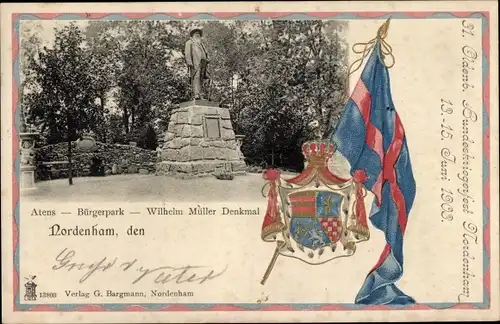 Atens — Bürgerpark — Wilhelm Müller Denkmal
Nordenham, den
Gruß v. Vater
13808 Verlag G. Bargmann, Nordenham
31. Oldenb. Bundeskriegerfest Nordenham
12.-15. Juni 1903.